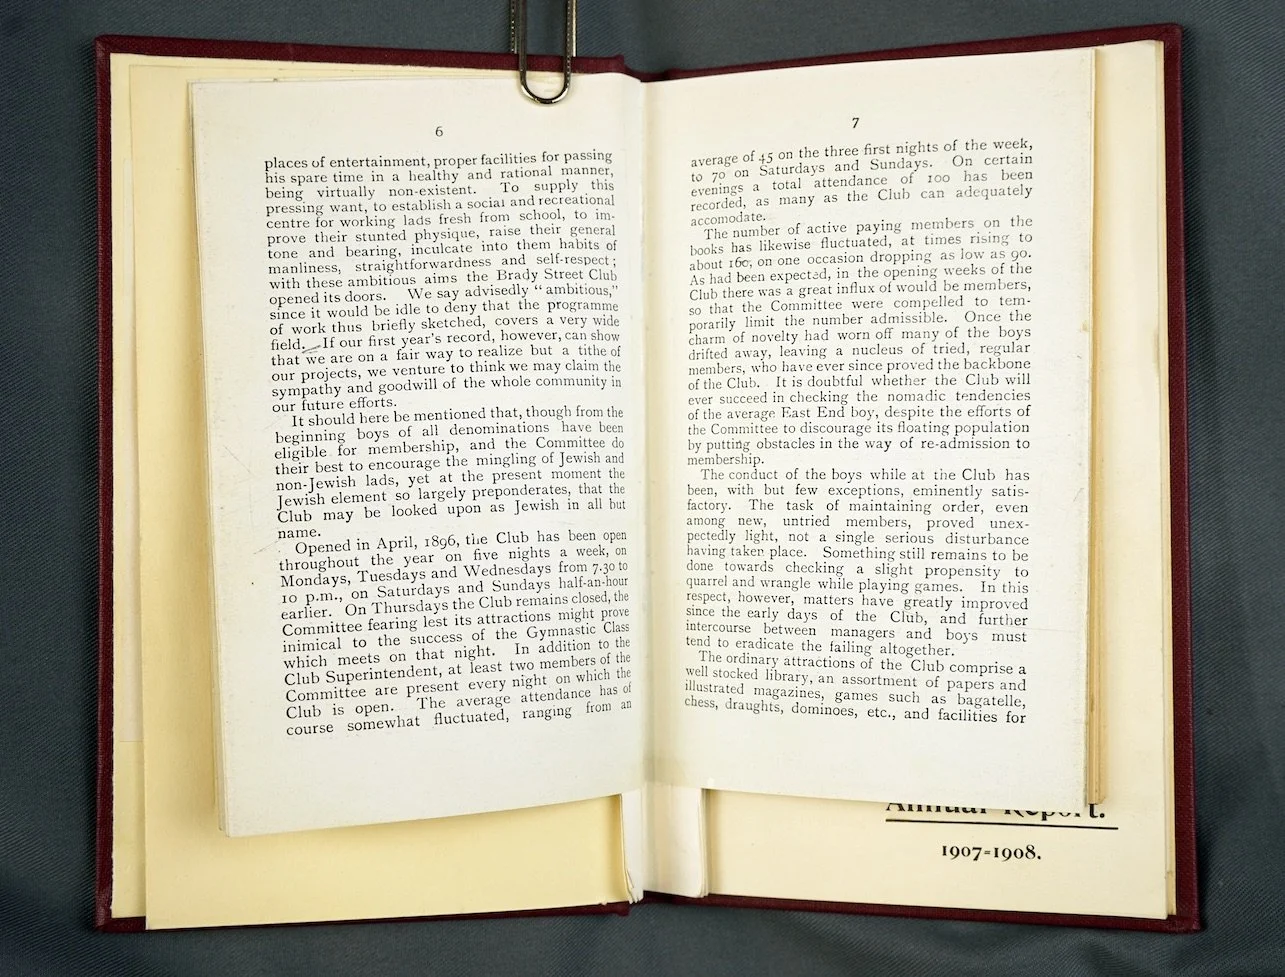 6
places of entertainment, proper facilities for passing
his spare time in a healthy and rational manner,
being virtually non-existent. To supply this
pressing want, to establish a social and recreational
centre for working lads fresh from school, to im-
prove their stunted physique, raise their general
tone and bearing, inculcate into them habits of
manliness, straightforwardness and self-respect;
with these ambitious aims the Brady Street Club
opened its doors. We say advisedly “ambitious,”
since it would be idle to deny that the programme
of work thus briefly sketched, covers a very wide
field. If our first year's record, however, can show
that we are on a fair way to realize but a tithe of
our projects, we venture to think we may claim the
sympathy and goodwill of the whole community in
our future efforts.
It should here be mentioned that, though from the
beginning boys of all denominations have been
eligible for membership, and the Committee do
their best to encourage the mingling of Jewish and
non-Jewish lads, yet at the present moment the
Jewish element so largely preponderates, that the
Club may be looked upon as Jewish in all but
name.
Opened in April, 1896, the Club has been open
throughout the year on five nights a week, on
Mondays, Tuesdays and Wednesdays from 7.30 to
10 p.m., on Saturdays and Sundays half-an-hour
earlier. On Thursdays the Club remains closed, the
Committee fearing lest its attractions might prove
inimical to the success of the Gymnastic Class
which meets on that night. In addition to the
Club Superintendent, at least two members of the
Committee are present every night on which the
Club is open. The average attendance has of
course somewhat fluctuated, ranging from an
7
average of 45 on the three first nights of the week,
to 70 on Saturdays and Sundays. On certain
evenings a total attendance of 100 has been
recorded, as many as the Club can adequately
accomodate.
The number of active paying members on the
books has likewise fluctuated, at times rising to
about 160, on one occasion dropping as low as 90.
As had been expected, in the opening weeks of the
Club there was a great influx of would be members,
so that the Committee were compelled to tem-
porarily limit the number admissible. Once the
charm of novelty had worn off many of the boys
drifted away, leaving a nucleus of tried, regular
members, who have ever since proved the backbone
of the Club. It is doubtful whether the Club will
ever succeed in checking the nomadic tendencies
of the average East End boy, despite the efforts of
the Committee to discourage its floating population
by putting obstacles in the way of re-admission to
membership.
The conduct of the boys while at the Club has
been, with but few exceptions, eminently satis-
factory. The task of maintaining order, even
among new, untried members, proved unex-
pectedly light, not a single serious disturbance
having taken place. Something still remains to be
done towards checking a slight propensity to
quarrel and wrangle while playing games. In this
respect, however, matters have greatly improved
since the early days of the Club, and further
intercourse between managers and boys must
tend to eradicate the failing altogether.
The ordinary attractions of the Club comprise a
well stocked library, an assortment of papers and
illustrated magazines, games such as bagatelle,
chess, draughts, dominoes, etc., and facilities for
Annual Report.
1907=1908.